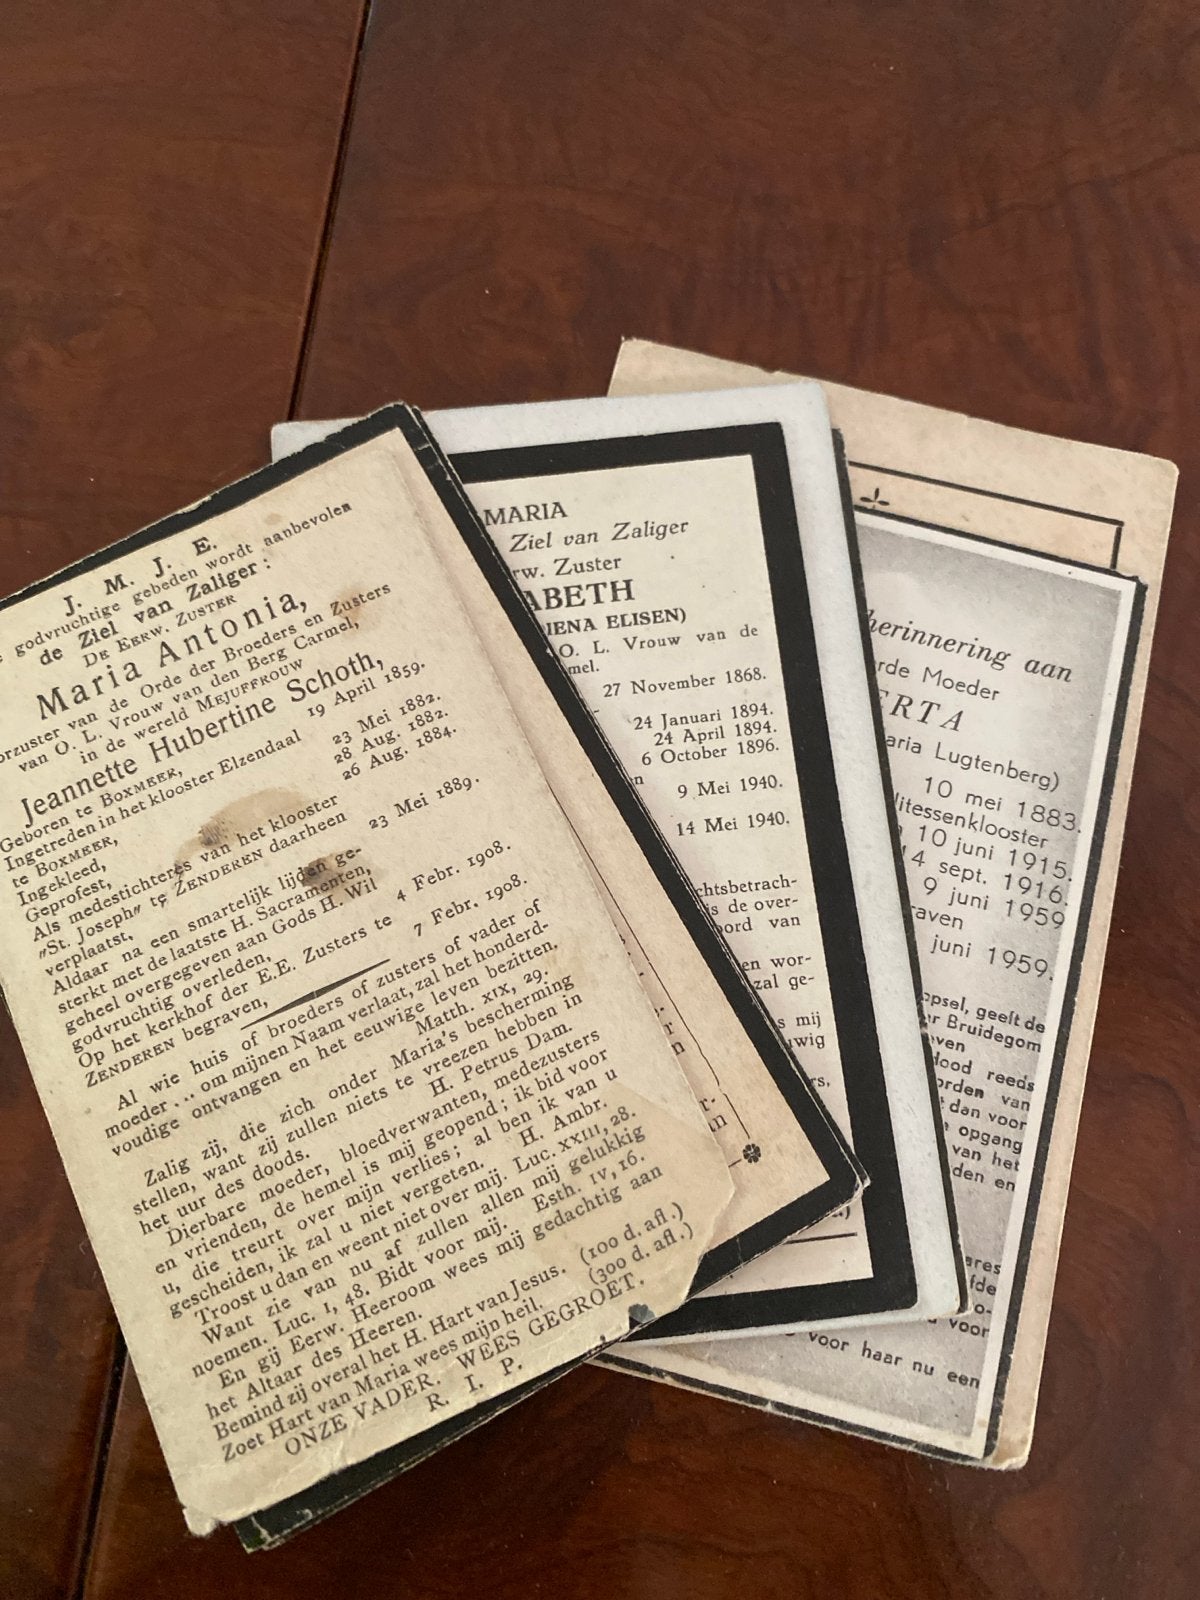 J. M. J. E.
godvruchtige gebeden wordt aanbevolen
de Ziel van Zaliger:
DE EERW. ZUSTER
Maria Antonia,
van de Orde der Broeders en Zusters
van O. L. Vrouw van den Berg Carmel,
in de wereld MEJUFFROUW
Jeannette Hubertine Schoth,
Geboren te BOXMEER, 19 April 1859.
Ingetreden in het klooster Elzendaal
te BOXMEER, 23 Mei 1882.
Ingekleed, 28 Aug. 1882.
Geprofest, 26 Aug. 1884.
Als medestichteres van het klooster
„St. Joseph„ te ZENDEREN daarheen
verplaatst, 23 Mei 1889.
Aldaar na een smartelijk lijden ge-
sterkt met de laatste H. Sacramenten,
geheel overgegeven aan Gods H. Wil
godvruchtig overleden, 4 Febr. 1908.
Op het kerkhof der E.E. Zusters te
ZENDEREN begraven, 7 Febr. 1908.
Al wie huis of broeders of zusters of vader of
moeder... om mijnen Naam verlaat, zal het honderd-
voudige ontvangen en het eeuwige leven bezitten.
Matth. XIX, 29.
Zalig zij, die zich onder Maria's bescherming
stellen, want zij zullen niets te vreezen hebben in
het uur des doods. H. Petrus Dam.
Dierbare moeder, bloedverwanten, medezusters
en vrienden, de hemel is mij geopend; ik bid voor
u, die treurt over mijn verlies; al ben ik van u
gescheiden, ik zal u niet vergeten. H. Ambr.
Troost u dan en weent niet over mij. Luc. XXIII, 28.
Want zie van nu af zullen allen mij gelukkig
noemen. Luc. I, 48. Bidt voor mij. Esth. IV, 16.
En gij Eerw. Heeroom wees mij gedachtig aan
het Altaar des Heeren.
Bemind zij overal het H. Hart van Jesus. (100 d. afl.)
Zoet Hart van Maria wees mijn heil. (300 d. afl.)
ONZE VADER. WEES GEGROET.
R. I. P.
MARIA
Ziel van Zaliger
rw. Zuster
ABETH
IENA ELISEN)
O. L. Vrouw van de
mel.
27 November 1868.
24 Januari 1894.
24 April 1894.
6 October 1896.
en
9 Mei 1940.
14 Mei 1940.
chtsbetrach-
is de over-
oord van
en wor-
zal ge-
s mij
uwig
rs,
herinnering aan
rde Moeder
ERTA
aria Lugtenberg)
10 mei 1883.
litessenklooster
10 juni 1915.
14 sept. 1916.
9 juni 1959
raven
juni 1959.
opsel, geelt de
er Bruidegom
even
dood reeds
orden van
t dan voor
e opgang
van het
den en
ares
fde
o-
voor
voor haar nu een